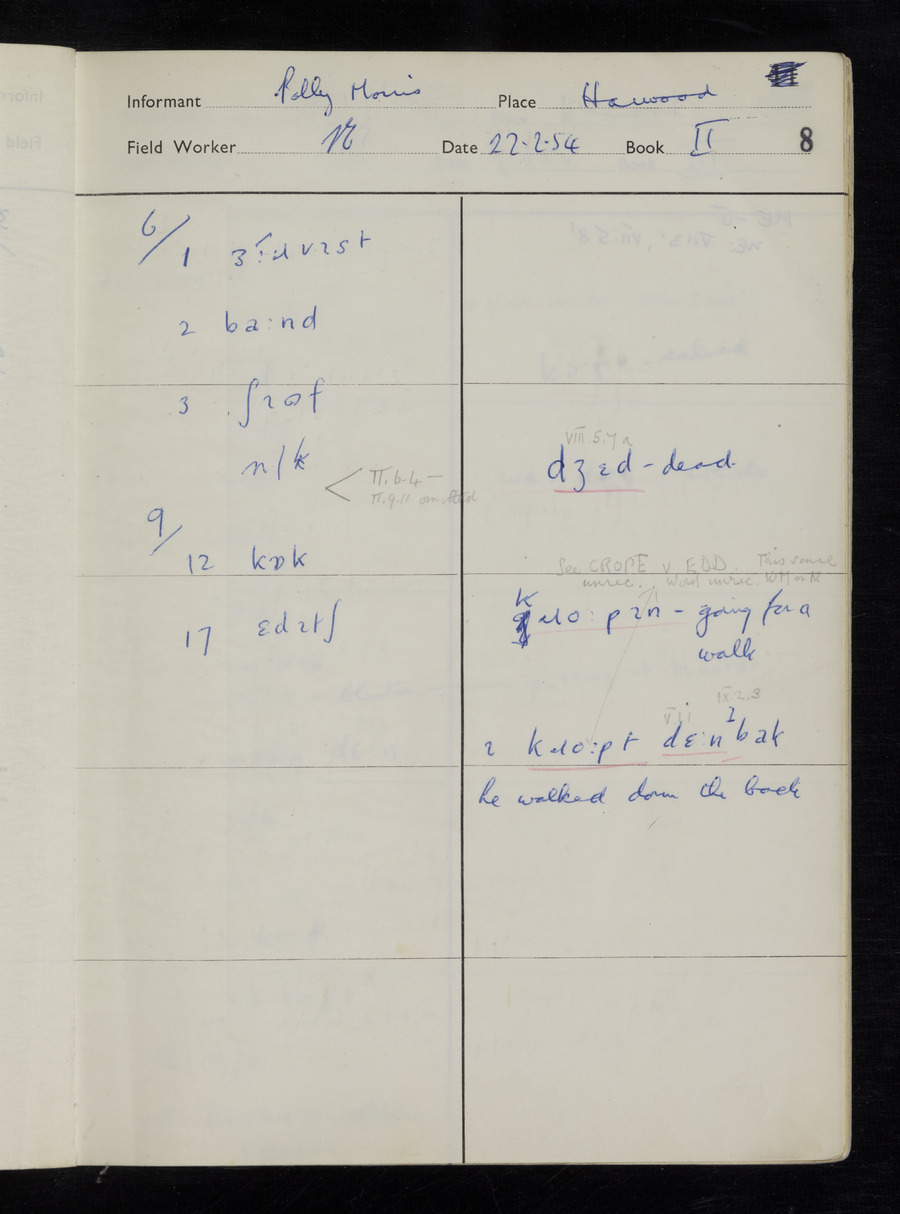 Informant Polly Morris Place Harwood
Field Worker Date 22.2.54 Book II 8
6/
1
2 ba:nd
3 ʃɿɷf
n/k
II.6.4 –
II.9.11 omitted
9/
12 kɒk
17 ɛdɿtʃ
VIII.5.7a
dʒɛd – dead
See CROPE v. EDD. This sense
unrec. Word unrec. WH or R
kɹɷ:pɿn – going for a
walk
V.1.1 IX.2.3
ɿ kɹɷ:pt dɛ:n bak
he walked down the back